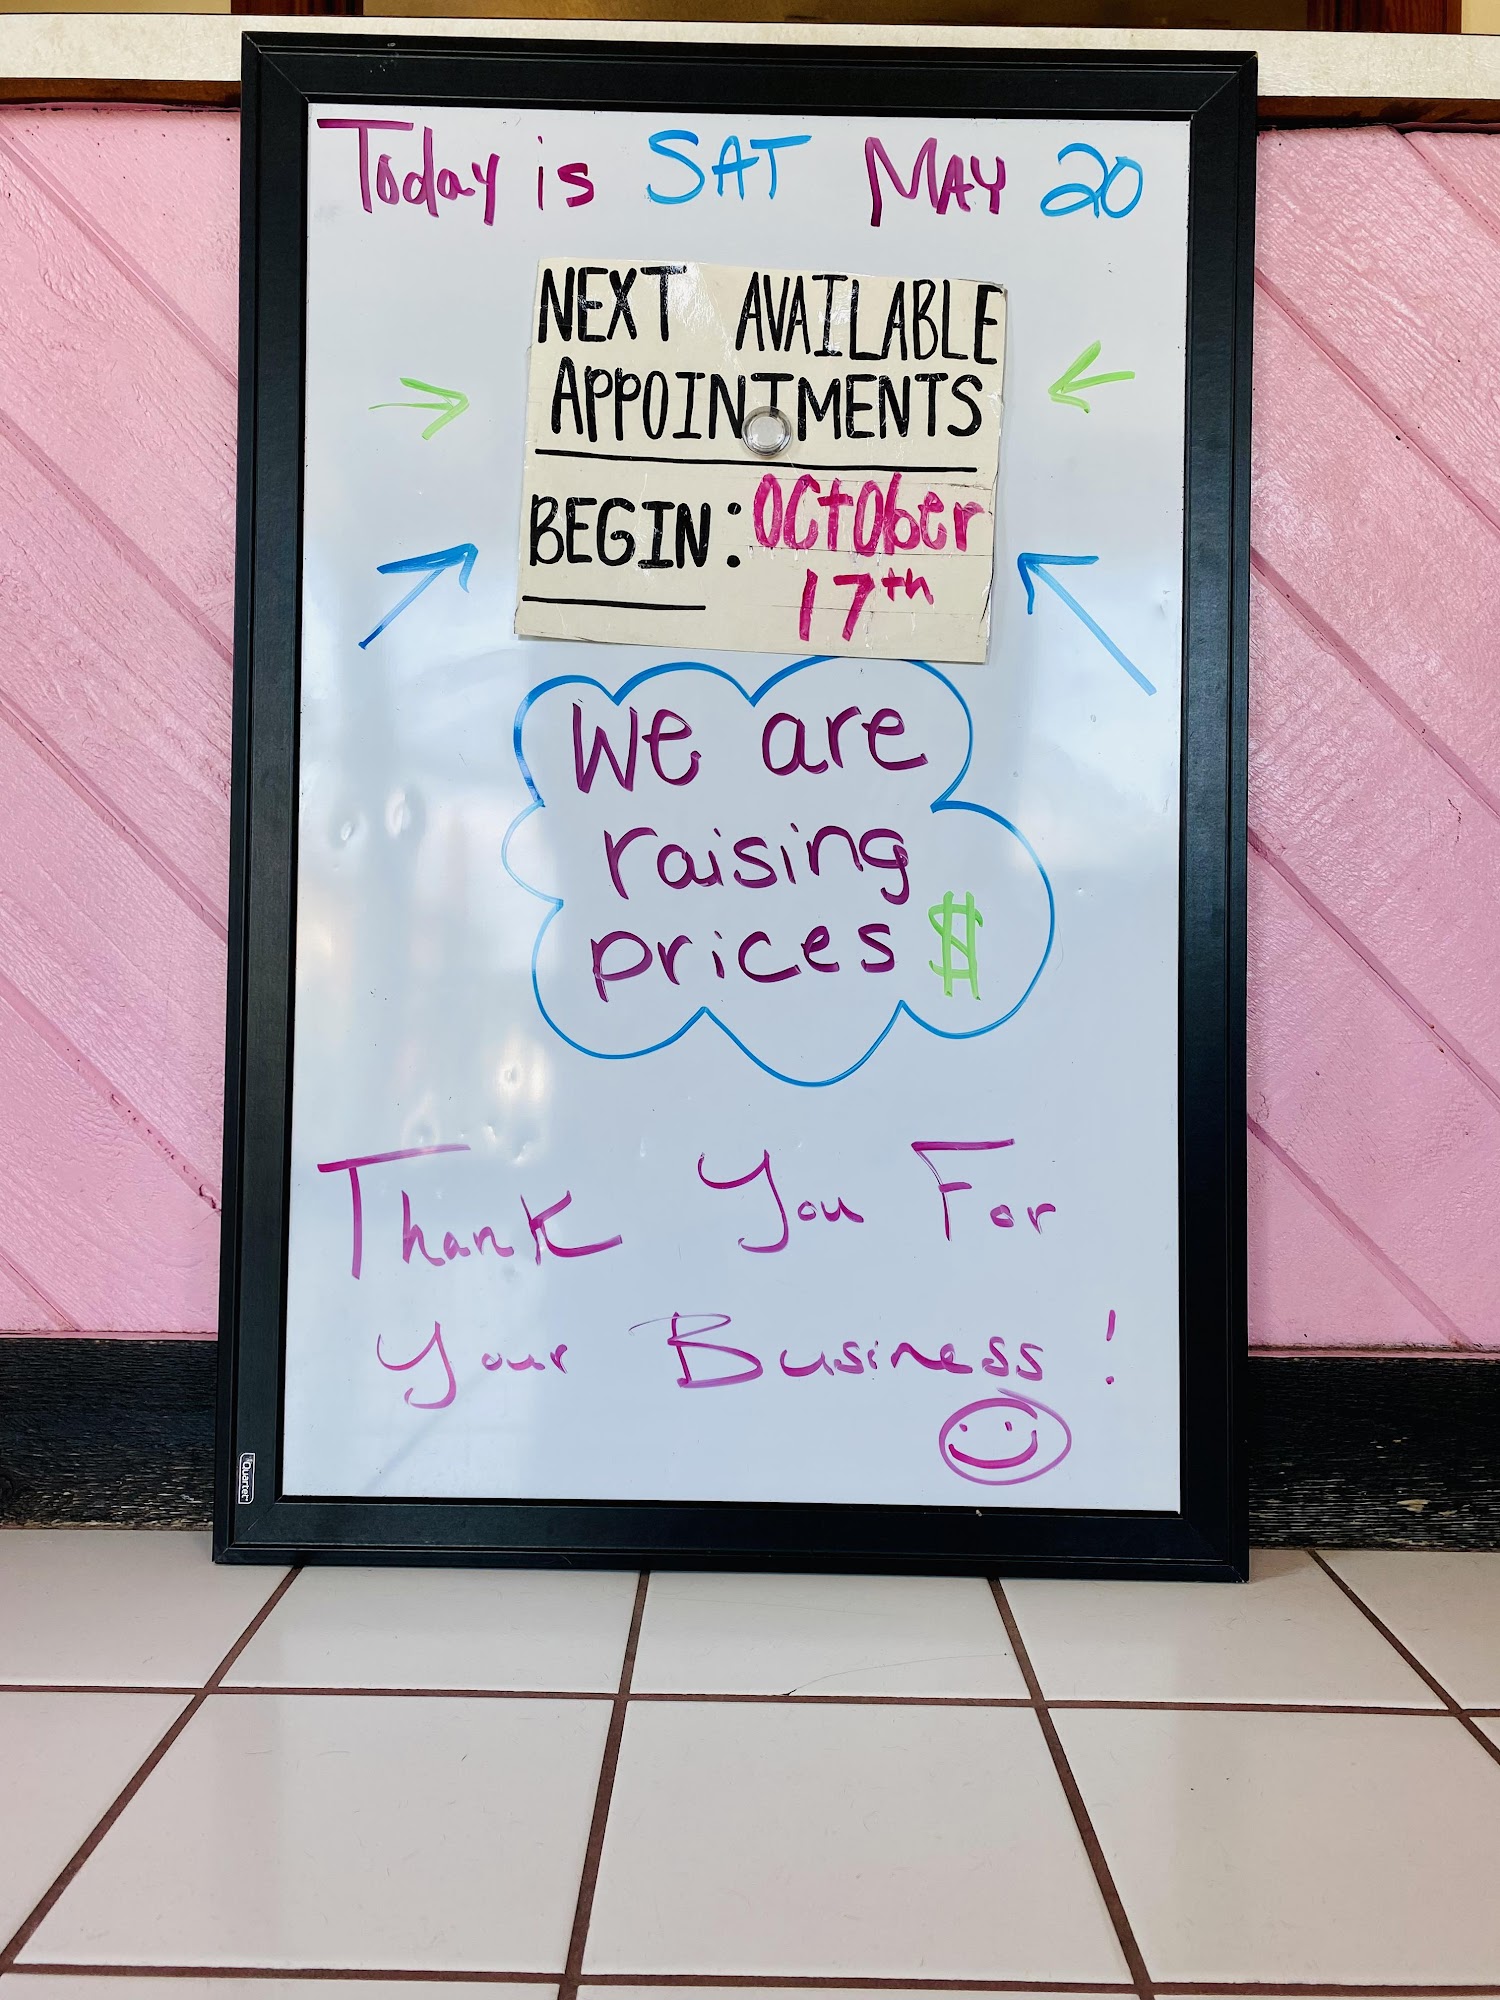 Today is SAT MAY 20
NEXT AVAILABLE
APPOINTMENTS
BEGIN: October
17th
We are
raising
prices $
Thank You For
Your Business!
Quartet